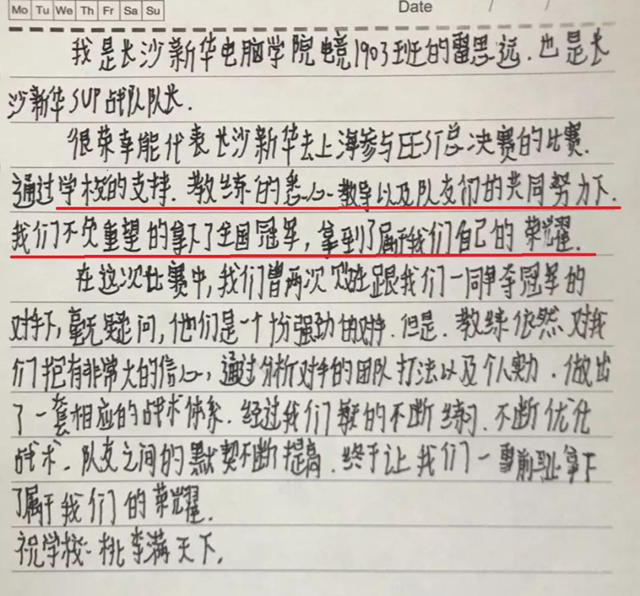 Mo Tu We Th Fr Sa Su
Date / /
我是长沙新华电脑学院电竞1903班的雷思远.也是长
沙新华SUP战队队长.
很荣幸能代表长沙新华去上海参与EEST总决赛的比赛.
通过学校的支持.教练的悉心教导以及队友们的共同努力下.
我们不负重望的拿下了全国冠军,拿到了属于我们自己的荣耀.
在这次比赛中,我们曾两次败给跟我们一同争夺冠军的
对手,毫无疑问,他们是一个十分强劲的对手.但是.教练依然对我
们抱有非常大的信心,通过分析对手的团队打法以及个人实力.做出
了一套相应的战术体系.经过我们的不断练习.不断优化
战术.队友之间的默契不断提高.终于让我们一雪前耻拿下
了属于我们的荣耀.
祝学校桃李满天下.